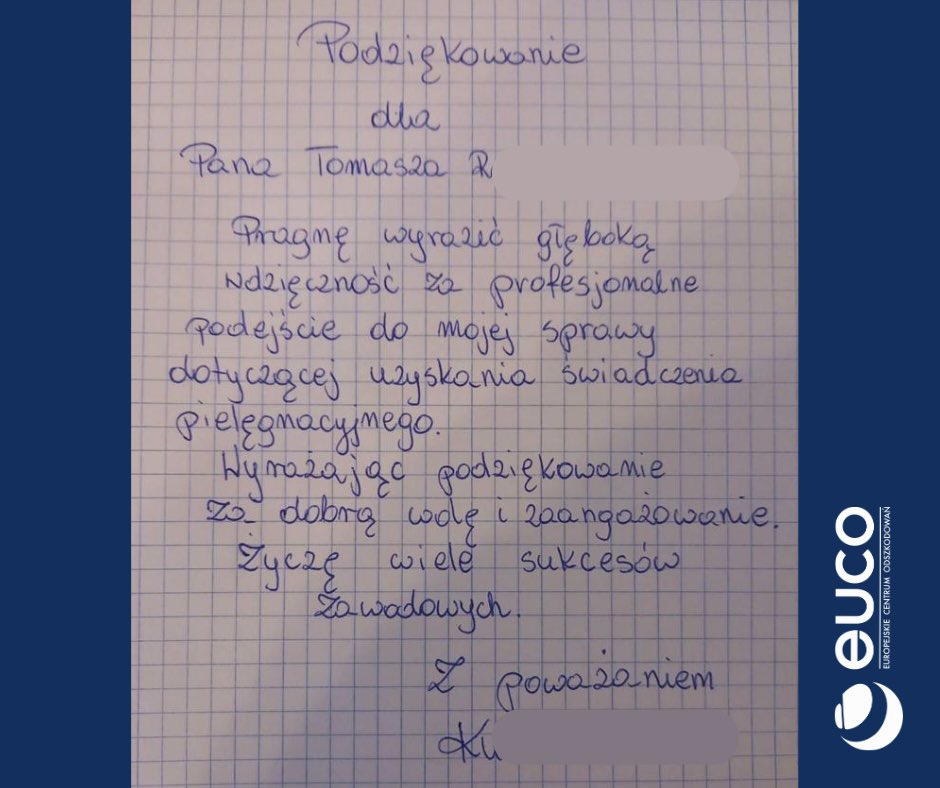 Podziękowanie
dla
Pana Tomasza R
Pragnę wyrazić głęboką
wdzięczność za profesjonalne
podejście do mojej sprawy
dotyczącej uzyskania świadczenia
pielęgnacyjnego.
Wyrażając podziękowanie
za dobrą wolę i zaangażowanie.
Życzę wiele sukcesów
zawadowych.
Z poważaniem
Ku
euco
EUROPEJSKIE CENTRUM ODSZKODOWAŃ